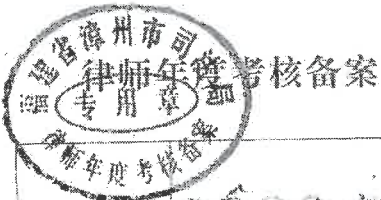 律师年度考核备案
福建省漳州市司法局
专用章
律师年度考核备案